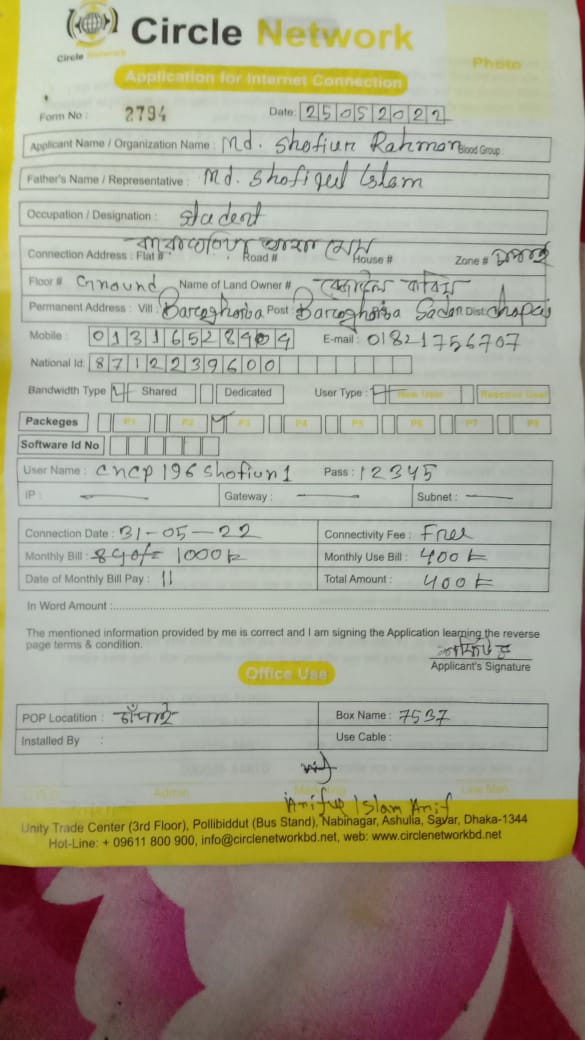 Circle Network
Circle Network
Application for Internet Connection
Photo
Form No : 2794 Date: 25052022
Applicant Name / Organization Name : Md. Shofiur Rahman Blood Group
Father's Name / Representative : Md. Shofiqul Islam
Occupation / Designation : Student
Connection Address : Flat # Road # House # Zone #
Floor # Ground Name of Land Owner #
Permanent Address : Vill : Baroghoria Post : Baroghoria Sadar Dist: chapai
Mobile : E-mail : 01821756707
National Id: 8712239600
Bandwidth Type Shared Dedicated User Type : New User Reactive User
Packeges P1 P2 P3 P4 P5 P6 P7 P8
Software Id No
User Name : cncp196shofiur1 Pass : 12345
IP : Gateway : Subnet :
Connection Date : 31-05-22 Connectivity Fee : Free
Monthly Bill : 1000 Monthly Use Bill : 400
Date of Monthly Bill Pay : 11 Total Amount : 400
In Word Amount :
The mentioned information provided by me is correct and I am signing the Application learning the reverse
page terms & condition.
Applicant's Signature
Office Use
POP Locatition : Box Name : 7537
Installed By : Use Cable :
Admin Marketing Line Man
Arifup Islam Arif
Unity Trade Center (3rd Floor), Pollibiddut (Bus Stand), Nabinagar, Ashulia, Savar, Dhaka-1344
Hot-Line: + 09611 800 900, info@circlenetworkbd.net, web: www.circlenetworkbd.net